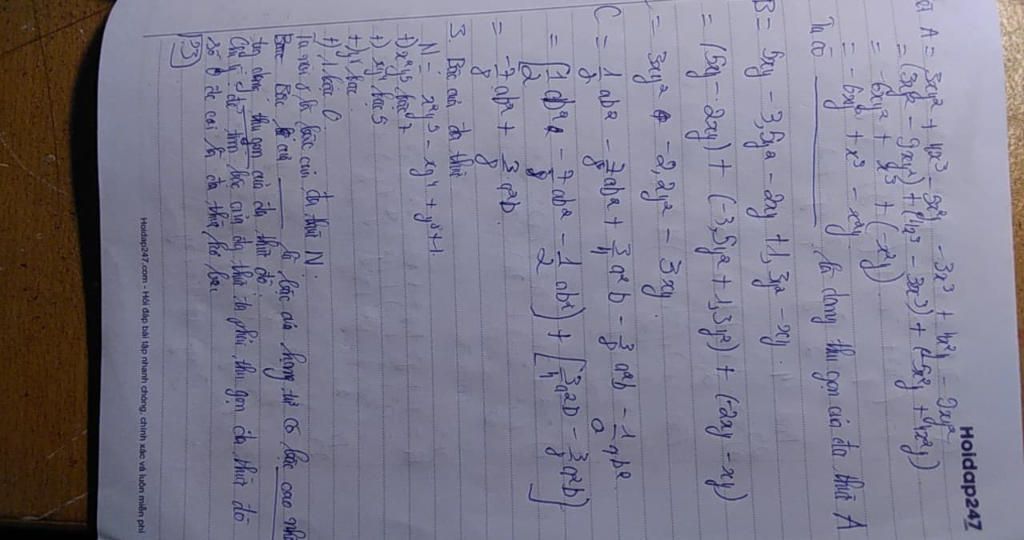 Hoidap247
A = 3xy² + 4x³ - 5x²y - 3x³ + 4x²y - 9xy²
= (3xy² - 9xy²) + (4x³ - 3x³) + (-5x²y + 4x²y)
= -6xy² + x³ + (-x²y)
= -6xy² + x³ - x²y
Ta có là dạng thu gọn của đa thức A
B = 5xy - 3,5y² - 2xy + 1,3y² - xy.
= (5xy - 2xy) + (-3,5y² + 1,3y²) + (-2xy - xy)
= 3xy - 2,2y² - 3xy
C = 1/2 ab² - 7/8 ab² + 3/4 a²b - 3/8 a²b - 1/2 ab².
= (1/2 ab² - 7/8 ab² - 1/2 ab²) + [3/4 a²b - 3/8 a²b]
= -7/8 ab² + 3/8 a²b.
3. Bậc của đa thức
N = x²y⁵ - xy⁴ + y⁶ + 1
+) x²y⁵ bậc 7
+) xy⁴ bậc 5
+) y⁶ bậc
+) 1 bậc 0
Ta nói là bậc của đa thức N.
Bậc của là bậc của hạng tử có bậc cao nhất
trong dạng thu gọn của đa thức đó
Chú ý: để tìm bậc của đa thức ta phải thu gọn đa thức đó
Số 0 đc coi là đa thức ko bậc
?3
Hoidap247.com - Hỏi đáp bài tập nhanh chóng, chính xác và luôn miễn phí